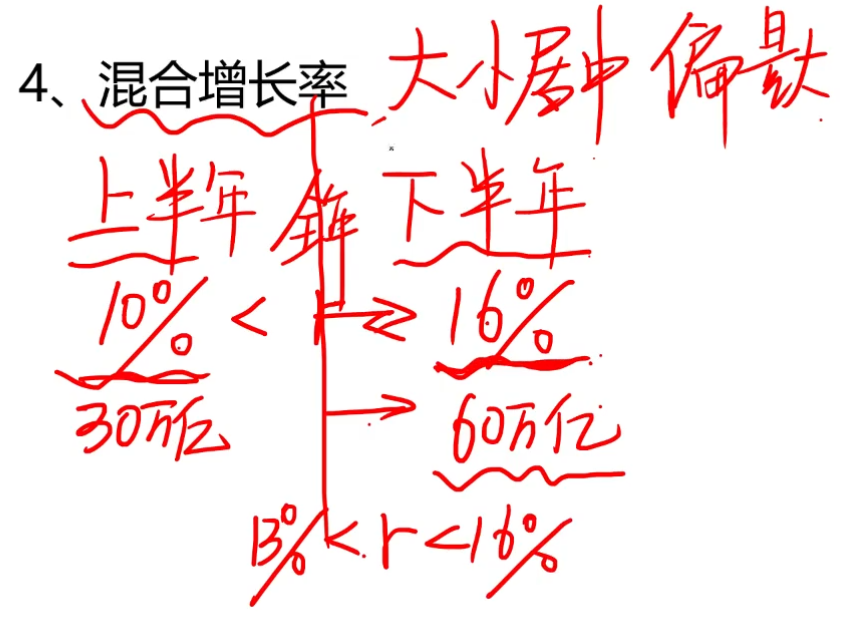 4、混合增长率 大小居中 偏量大
上半年 全年 下半年
10% < r < 16%
30万亿 60万亿
13% < r < 16%